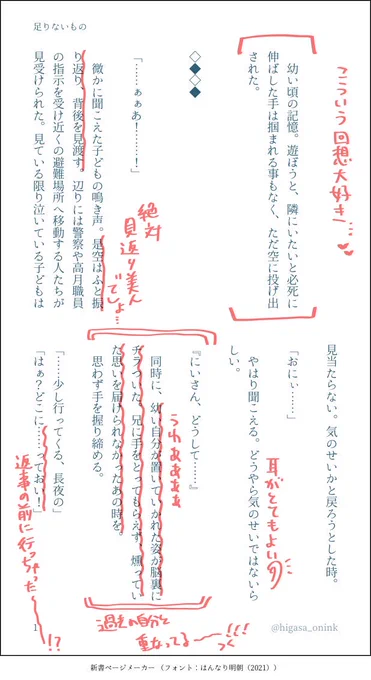 足りないもの
幼い頃の記憶。遊ぼうと、隣にいたいと必死に
伸ばした手は掴まれる事もなく、ただ空に投げ出
された。
◇◆◇◆
「……ぁぁあ！……！」
微かに聞こえた子どもの鳴き声。是空はふと振
り返り、背後を見渡す。辺りには警察や高月職員
の指示を受け近くの避難場所へ移動する人たちが
見受けられた。見ている限り泣いている子どもは
こういう回想大好き…
絶対
見返り美人
でしょ…
見当たらない。気のせいかと戻ろうとした時。
「おにぃ……」
やはり聞こえる。どうやら気のせいではないら
しい。
『にいさん、どうして……』
同時に、幼い自分が置いていかれた姿が脳裏に
チラついた。兄に手をとってもらえず、燻ってい
た思いを届けられなかったあの時を。
思わず手を握り締める。
「……少し行ってくる、長夜の」
「はぁ？どこに……っておい！」
耳がとてもよい
うわああああ
過去の自分と
重なってる〜〜!!!
返事の前に行っちゃった
!?
1
@higasa_onink
新書ページメーカー（フォント：はんなり明朝（2021））